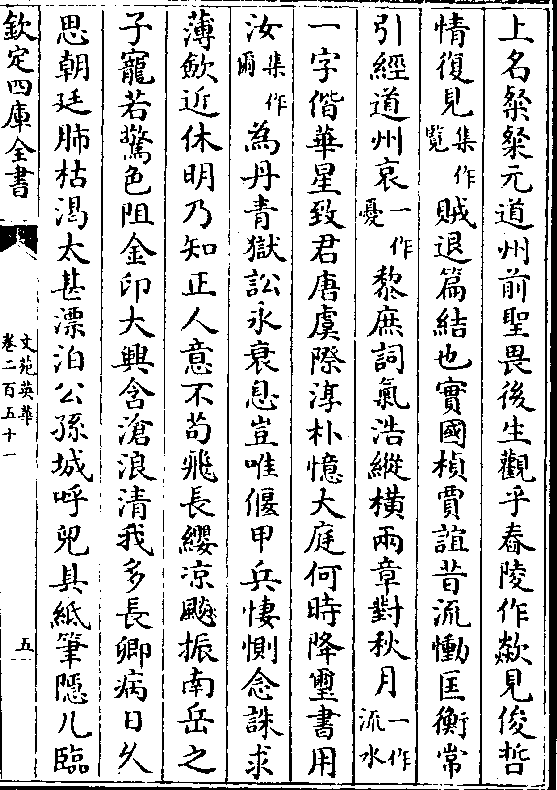 上名粲粲元道州前聖畏後生觀乎舂陵作欻見俊哲
情復見集作覽賊退篇結也實國楨賈誼昔流慟匡衡常
引經道州哀一作憂黎庶詞氣浩縱橫兩章對秋月一作流水
一字偕華星致君唐虞際淳朴憶大庭何時降璽書用
汝集作爾為丹青獄訟永衰息豈唯偃甲兵悽惻念誅求
薄歛近休明乃知正人意不苟飛長纓凉飈振南岳之
子寵若驚色阻金印大興含滄浪清我多長卿病日久
思朝廷肺枯渴太甚漂泊公孫城呼兒具紙筆隱几臨
欽定四庫全書
文苑英華
卷二百五十一
五